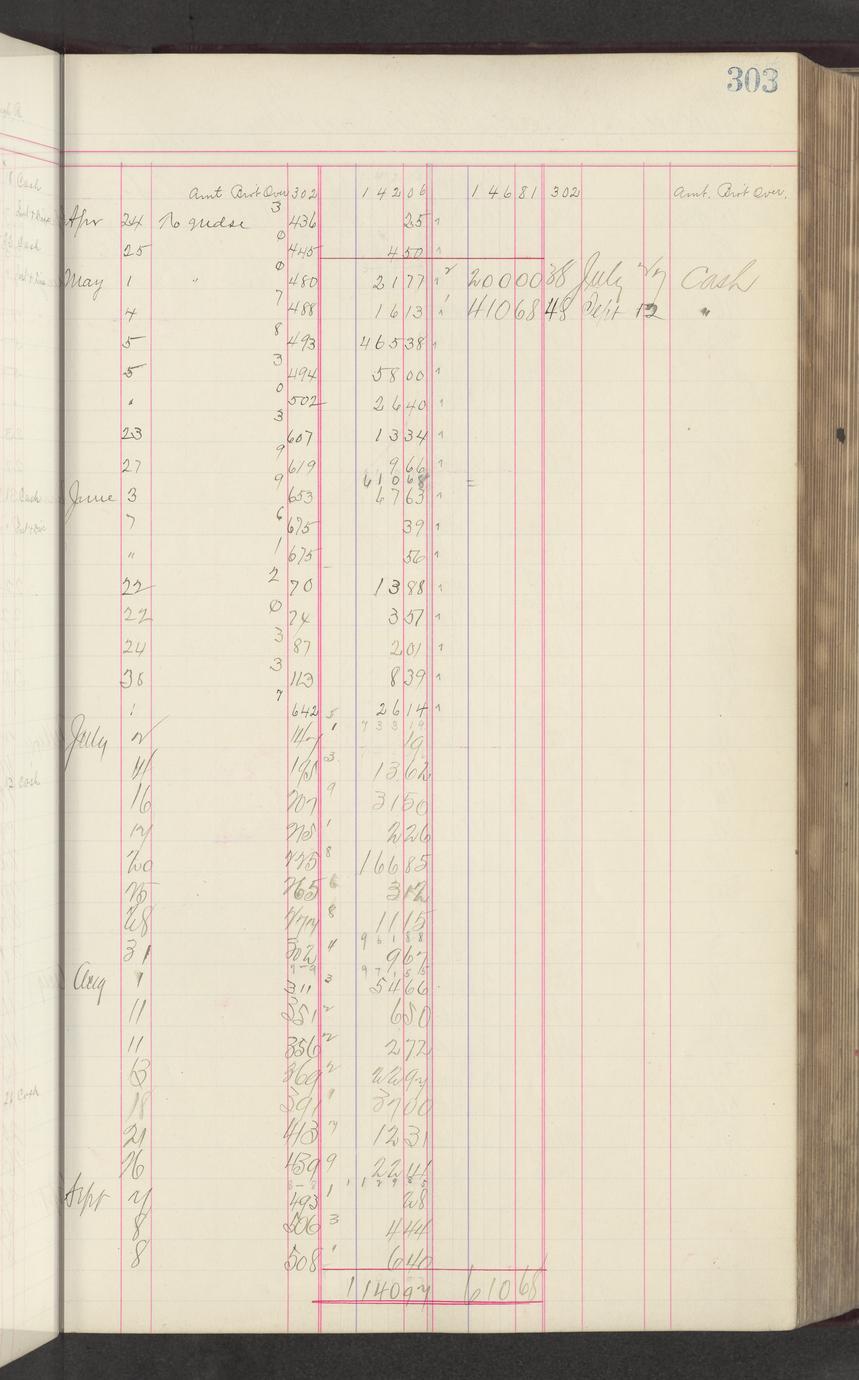 303
Amt Brot Over 302 142 06 146 81 302 Amt. Brot Over.
Apr 24 To mdse 3 436 25
25 0 445 4 50
May 1 " 0 480 21 77 2 200 00 38 July 27 Cash
4 7 488 16 13 1 410 68 48 Sept 12 "
5 8 493 465 38
5 3 494 58 00
" 0 502 26 40
23 3 607 13 34
27 9 619 9 66
610 68 =
June 3 9 653 67 63
7 6 675 39
" 1 675 56
22 2 70 13 88
22 0 74 3 57
24 3 87 2 01
30 3 113 8 39
" 7 642 5 26 14
733 19
July 2 147 1 19
11 195 3 13 62
16 207 9 31 50
17 1 2 26
20 8 166 85
25 265 6 3 12
28 277 8 11 15
961 88
31 302 4 9 67
971 55
Aug 1 311 3 54 66
11 351 2 6 50
11 356 2 2 72
13 369 2 22 97
18 391 1 37 00
21 413 7 12 31
26 439 9 22 41
Sept 7 493 1 28
8 506 3 4 44
8 508 1 6 40
1140 97 610 68